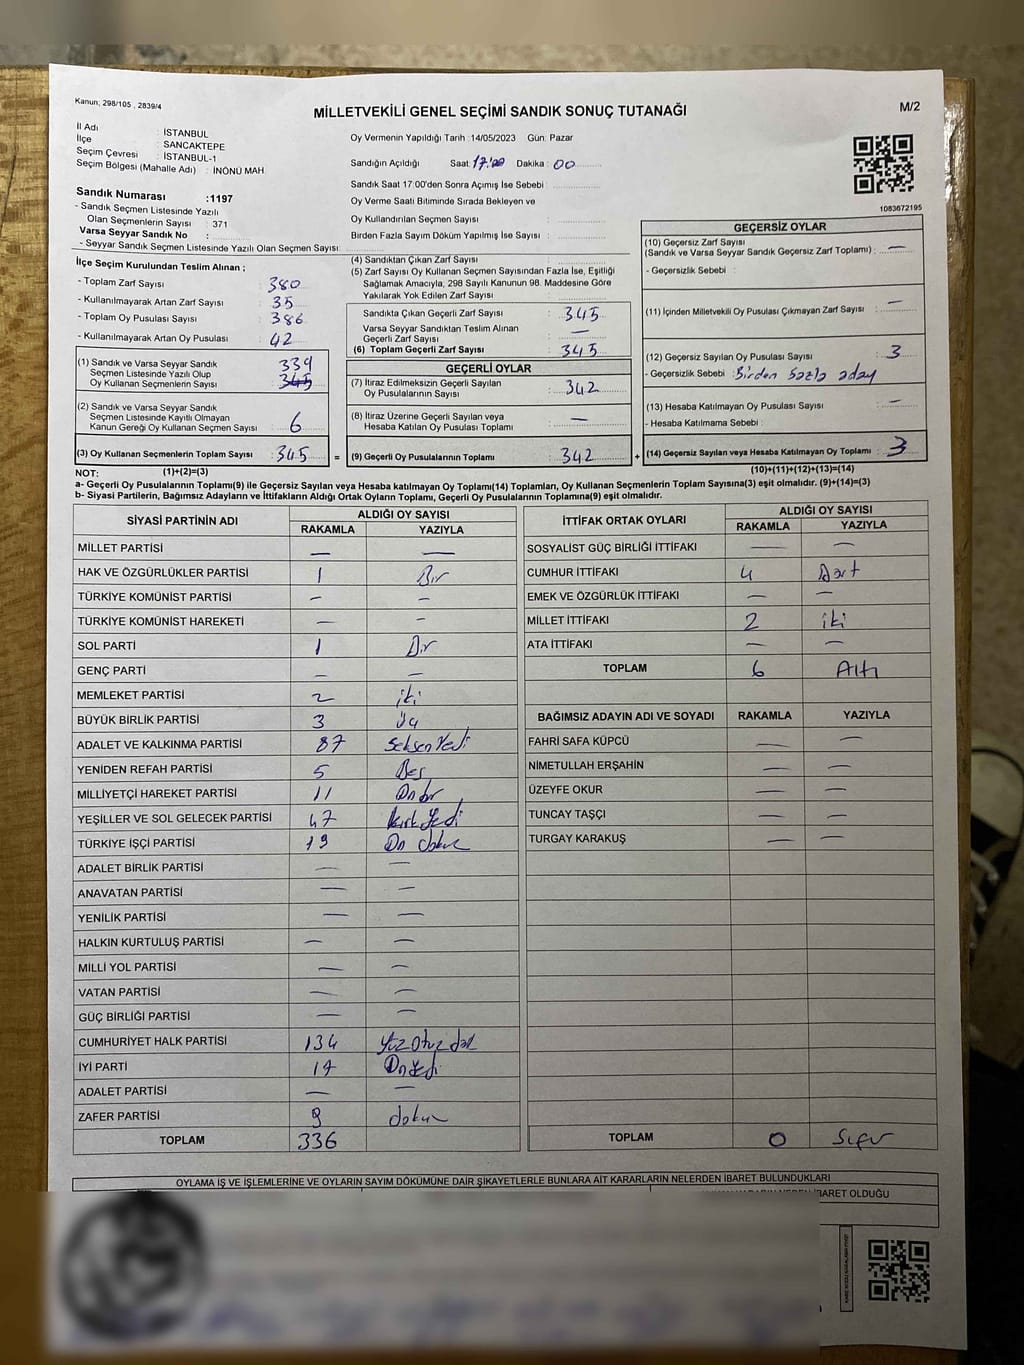 Kanun; 298/105 , 2839/4
MİLLETVEKİLİ GENEL SEÇİMİ SANDIK SONUÇ TUTANAĞI
M/2
İl Adı : İSTANBUL
İlçe : SANCAKTEPE
Seçim Çevresi : İSTANBUL-1
Seçim Bölgesi (Mahalle Adı) : İNÖNÜ MAH
Sandık Numarası :1197
- Sandık Seçmen Listesinde Yazılı
Olan Seçmenlerin Sayısı : 371
Varsa Seyyar Sandık No :
- Seyyar Sandık Seçmen Listesinde Yazılı Olan Seçmen Sayısı :
Oy Vermenin Yapıldığı Tarih :14/05/2023 Gün: Pazar
Sandığın Açıldığı Saat: 17:00 Dakika : 00
Sandık Saat 17:00'den Sonra Açımış İse Sebebi :
Oy Verme Saati Bitiminde Sırada Bekleyen ve
Oy Kullandırılan Seçmen Sayısı :
Birden Fazla Sayım Döküm Yapılmış İse Sayısı :
1083672195
İlçe Seçim Kurulundan Teslim Alınan ;
- Toplam Zarf Sayısı : 380
- Kullanılmayarak Artan Zarf Sayısı : 35
- Toplam Oy Pusulası Sayısı : 386
- Kullanılmayarak Artan Oy Pusulası : 42
(1) Sandık ve Varsa Seyyar Sandık
Seçmen Listesinde Yazılı Olup
Oy Kullanan Seçmenlerin Sayısı : 339
345
(2) Sandık ve Varsa Seyyar Sandık
Seçmen Listesinde Kayıtlı Olmayan
Kanun Gereği Oy Kullanan Seçmen Sayısı : 6
(3) Oy Kullanan Seçmenlerin Toplam Sayısı : 345 =
(4) Sandıktan Çıkan Zarf Sayısı :
(5) Zarf Sayısı Oy Kullanan Seçmen Sayısından Fazla İse, Eşitliği
Sağlamak Amacıyla, 298 Sayılı Kanunun 98. Maddesine Göre
Yakılarak Yok Edilen Zarf Sayısı :
Sandıkta Çıkan Geçerli Zarf Sayısı : 345
Varsa Seyyar Sandıktan Teslim Alınan
Geçerli Zarf Sayısı : —
(6) Toplam Geçerli Zarf Sayısı : 345
GEÇERLİ OYLAR
(7) İtiraz Edilmeksizin Geçerli Sayılan
Oy Pusulalarının Sayısı : 342
(8) İtiraz Üzerine Geçerli Sayılan veya
Hesaba Katılan Oy Pusulası Toplamı : —
(9) Geçerli Oy Pusulalarının Toplamı : 342 +
GEÇERSİZ OYLAR
(10) Geçersiz Zarf Sayısı
(Sandık ve Varsa Seyyar Sandık Geçersiz Zarf Toplamı) : —
- Geçersizlik Sebebi :
(11) İçinden Milletvekili Oy Pusulası Çıkmayan Zarf Sayısı : —
(12) Geçersiz Sayılan Oy Pusulası Sayısı : 3
- Geçersizlik Sebebi : Birden fazla aday
(13) Hesaba Katılmayan Oy Pusulası Sayısı : —
- Hesaba Katılmama Sebebi :
(14) Geçersiz Sayılan veya Hesaba Katılmayan Oy Toplamı : 3
NOT: (1)+(2)=(3)
(10)+(11)+(12)+(13)=(14)
a- Geçerli Oy Pusulalarının Toplamı(9) ile Geçersiz Sayılan veya Hesaba katılmayan Oy Toplamı(14) Toplamları, Oy Kullanan Seçmenlerin Toplam Sayısına(3) eşit olmalıdır. (9)+(14)=(3)
b- Siyasi Partilerin, Bağımsız Adayların ve İttifakların Aldığı Ortak Oyların Toplamı, Geçerli Oy Pusulalarının Toplamına(9) eşit olmalıdır.
SİYASİ PARTİNİN ADI ALDIĞI OY SAYISI
RAKAMLA YAZIYLA
MİLLET PARTİSİ — —
HAK VE ÖZGÜRLÜKLER PARTİSİ 1 Bir
TÜRKİYE KOMÜNİST PARTİSİ — —
TÜRKİYE KOMÜNİST HAREKETİ — —
SOL PARTİ 1 Bir
GENÇ PARTİ — —
MEMLEKET PARTİSİ 2 iki
BÜYÜK BİRLİK PARTİSİ 3 üç
ADALET VE KALKINMA PARTİSİ 87 SeksenYedi
YENİDEN REFAH PARTİSİ 5 Beş
MİLLİYETÇİ HAREKET PARTİSİ 11 Onbir
YEŞİLLER VE SOL GELECEK PARTİSİ 47 KırkYedi
TÜRKİYE İŞÇİ PARTİSİ 19 On dokuz
ADALET BİRLİK PARTİSİ — —
ANAVATAN PARTİSİ — —
YENİLİK PARTİSİ — —
HALKIN KURTULUŞ PARTİSİ — —
MİLLİ YOL PARTİSİ — —
VATAN PARTİSİ — —
GÜÇ BİRLİĞİ PARTİSİ — —
CUMHURİYET HALK PARTİSİ 134 Yüz Otuz dört
İYİ PARTİ 17 OnYedi
ADALET PARTİSİ — —
ZAFER PARTİSİ 9 dokuz
TOPLAM 336
İTTİFAK ORTAK OYLARI ALDIĞI OY SAYISI
RAKAMLA YAZIYLA
SOSYALİST GÜÇ BİRLİĞİ İTTİFAKI — —
CUMHUR İTTİFAKI 4 Dört
EMEK VE ÖZGÜRLÜK İTTİFAKI — —
MİLLET İTTİFAKI 2 iki
ATA İTTİFAKI — —
TOPLAM 6 Altı
BAĞIMSIZ ADAYIN ADI VE SOYADI RAKAMLA YAZIYLA
FAHRİ SAFA KÜPCÜ — —
NİMETULLAH ERŞAHİN — —
ÜZEYFE OKUR — —
TUNCAY TAŞÇI — —
TURGAY KARAKUŞ — —
TOPLAM 0 Sıfır
OYLAMA İŞ VE İŞLEMLERİNE VE OYLARIN SAYIM DÖKÜMÜNE DAİR ŞİKAYETLERLE BUNLARA AİT KARARLARIN NELERDEN İBARET BULUNDUKLARI
İBARET OLDUĞU